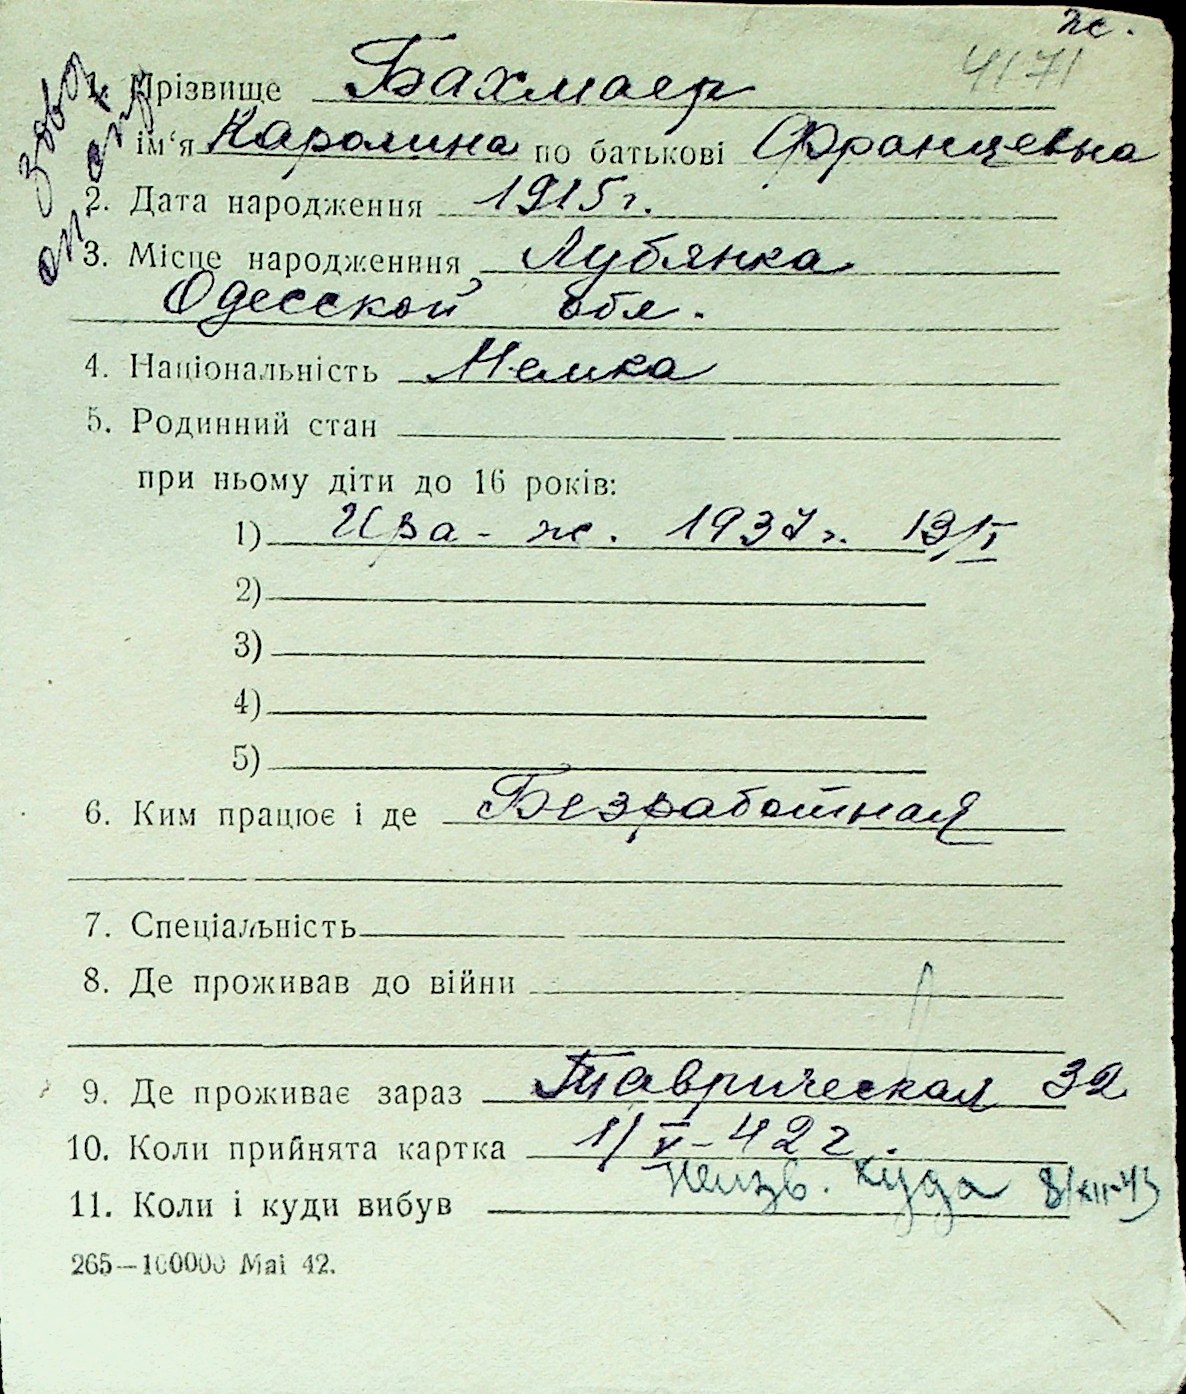 ж.
4171
1. Прізвище Бахмаер
ім'я Каролина по батькові Францевна
2. Дата народження 1915г.
3. Місце народженння Лубянка
Одесской обл.
4. Національність Немка
5. Родинний стан
при ньому діти до 16 років:
1) Ира - ж. 1937г. 13/I
2)
3)
4)
5)
6. Ким працює і де Безработная
7. Спеціальність
8. Де проживав до війни
9. Де проживає зараз Таврическая 32
10. Коли прийнята картка 1/V-42г.
11. Коли і куди вибув неизв. куда 8/XII-43
265—100000 Маі 42.